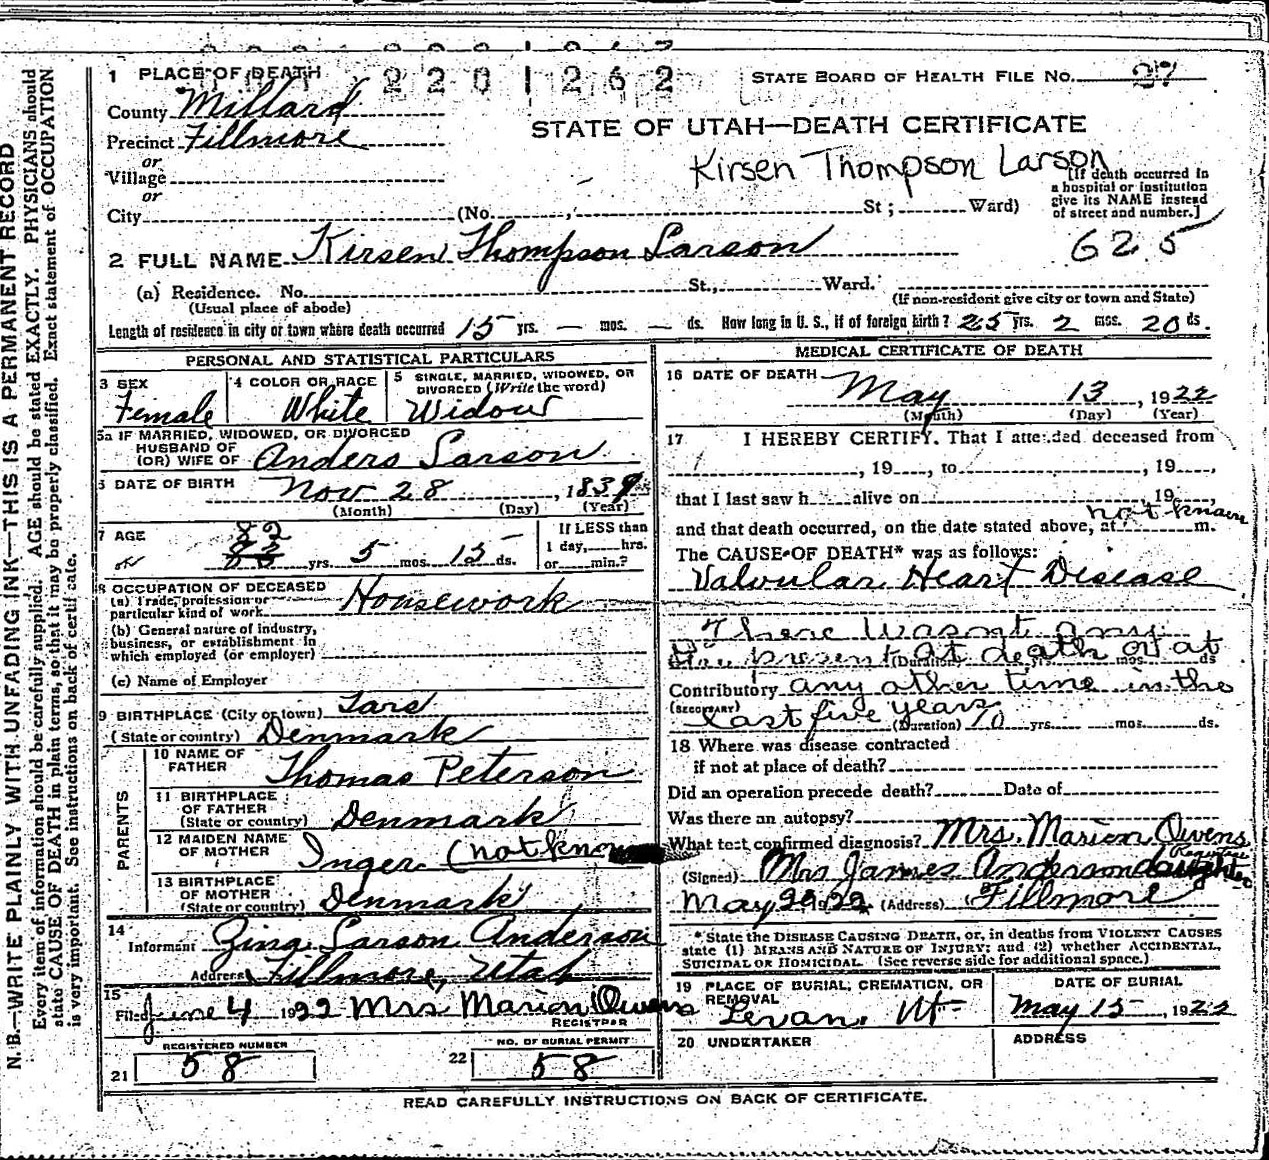 2201262
1 PLACE OF DEATH
STATE BOARD OF HEALTH FILE NO. 27
County Millard
Precinct Fillmore
STATE OF UTAH—DEATH CERTIFICATE
Kirsen Thompson Larson
or
Village
or
City (No. , St ; Ward)
[If death occurred in
a hospital or institution
give its NAME instead
of street and number.]
625
2 FULL NAME Kirsen Thompson Larson
(a) Residence. No. St., Ward.
(Usual place of abode)
(If non-resident give city or town and State)
Length of residence in city or town where death occurred 15 yrs. — mos. — ds. How long in U. S., if of foreign birth? 25 yrs. 2 mos. 20 ds.
PERSONAL AND STATISTICAL PARTICULARS
3 SEX
Female
4 COLOR OR RACE
White
5 SINGLE, MARRIED, WIDOWED, OR
DIVORCED (Write the word)
Widow
5a IF MARRIED, WIDOWED, OR DIVORCED
HUSBAND OF
(OR) WIFE OF Anders Larson
6 DATE OF BIRTH Nov 28, 1839
(Month) (Day) (Year)
7 AGE
82
or 83 yrs. 5 mos. 15 ds.
If LESS than
1 day, hrs.
or min.?
8 OCCUPATION OF DECEASED
(a) Trade, profession or
particular kind of work Housework
(b) General nature of industry,
business, or establishment in
which employed (or employer)
(c) Name of Employer
9 BIRTHPLACE (City or town) Tars
(State or country) Denmark
PARENTS
10 NAME OF
FATHER Thomas Peterson
11 BIRTHPLACE
OF FATHER
(State or country) Denmark
12 MAIDEN NAME
OF MOTHER Inger (not known
13 BIRTHPLACE
OF MOTHER
(State or country) Denmark
14
Informant Zina Larson Anderson
Address Fillmore, Utah
15
Filed June 4 1922 Mrs Marion Owens
REGISTRAR
REGISTERED NUMBER
21 58
NO. OF BURIAL PERMIT
22 58
MEDICAL CERTIFICATE OF DEATH
16 DATE OF DEATH
May 13, 1922
(Month) (Day) (Year)
17 I HEREBY CERTIFY. That I attended deceased from
, 19 , to , 19 ,
that I last saw h alive on , 19 ,
not known
and that death occurred, on the date stated above, at m.
The CAUSE OF DEATH* was as follows:
Valvular Heart Disease
There wasnt any
present at death or at
(Duration) yrs. mos. ds
Contributory any other time in the
(SECONDARY)
last five years (Duration) 10 yrs. mos. ds.
18 Where was disease contracted
if not at place of death?
Did an operation precede death? Date of
Was there an autopsy?
What test confirmed diagnosis? Mrs. Marion Owens
Registrar
(Signed) Mrs James Anderson daughter
May 29 1922 (Address) Fillmore
*State the DISEASE CAUSING DEATH, or, in deaths from VIOLENT CAUSES
state (1) MEANS AND NATURE OF INJURY; and (2) whether ACCIDENTAL,
SUICIDAL OR HOMICIDAL. (See reverse side for additional space.)
19 PLACE OF BURIAL, CREMATION, OR
REMOVAL
Levan, Ut
DATE OF BURIAL
May 15, 1922
20 UNDERTAKER
ADDRESS
READ CAREFULLY INSTRUCTIONS ON BACK OF CERTIFICATE.
N. B.—WRITE PLAINLY WITH UNFADING INK—THIS IS A PERMANENT RECORD
Every item of information should be carefully supplied. AGE should be stated EXACTLY. PHYSICIANS should
state CAUSE OF DEATH in plain terms, so that it may be properly classified. Exact statement of OCCUPATION
is very important. See instructions on back of certificate.